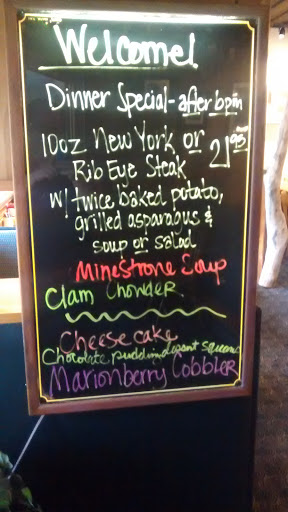 Welcome!
Dinner Special - after 6pm
10oz New York or
Rib Eye Steak
21.95
w/ twice baked potato,
grilled asparagus &
soup or salad
Minestrone Soup
Clam Chowder
Cheese cake
Chocolate pudding desert square
Marionberry Cobbler